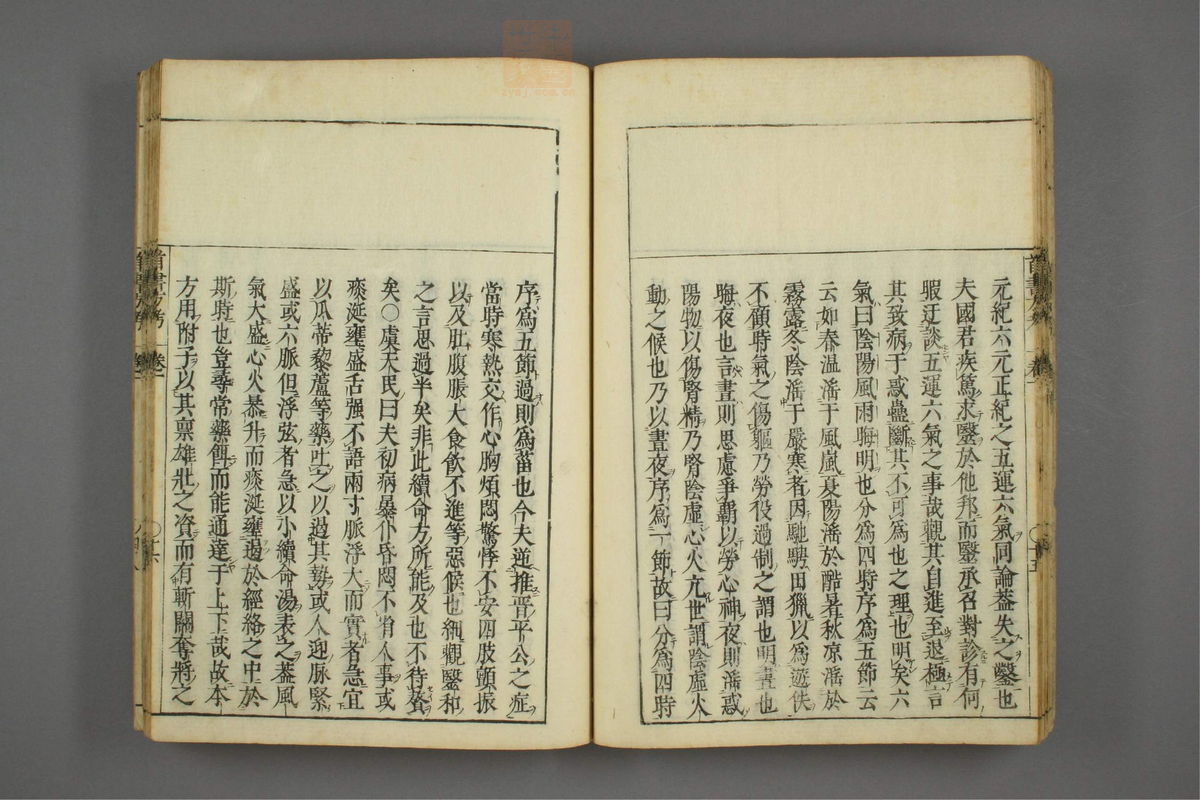 元紀六元正紀之五運六氣同論蓋失之鑿也
夫國君疾篤求醫於他邦而醫承召對診有何
暇迂談五運六氣之事哉觀其自進至退極言
其致病于惑蠱斷其不可爲也之理也明矣六
氣曰陰陽風雨晦明也分爲四時序爲五節云
云如春温滛于風嵐夏陽滛於酷暑秋凉滛於
霧露冬陰滛于嚴寒者因馳騁田獵以爲遊佚
不顧時氣之傷軀乃勞役過制之謂也明晝也
晦夜也言晝則思慮爭霸以勞心神夜則滛惑
陽物以傷腎精乃腎陰虛心火亢世謂陰虛火
動之候也乃以晝夜序爲一節故曰分爲四時
序爲五節過則爲菑也今夫逆推晋平公之症
當時寒熱交作心胸煩悶驚悸不安四肢顫振
以及肚腹脹大食飲不進等惡候也細觀醫和
之言思過半矣非此續命方所能及也不待贅
矣○虞天民曰夫初病暴仆昏悶不省人事或
痰涎壅盛舌强不語兩寸脈浮大而實者急宜
以瓜蒂藜蘆等藥吐之以遏其勢或人迎脉緊
盛或六脈但浮弦者急以小續命湯表之蓋風
氣大盛心火暴升而痰涎壅遏於經絡之中於
斯時也豈尋常藥餌而能通達于上下哉故本
方用附子以其禀雄壯之資而有斬關奪將之